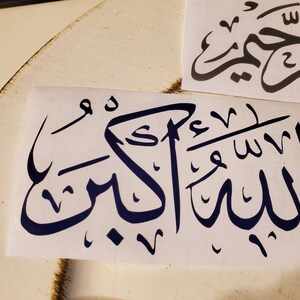 رحيم
الله أكبر